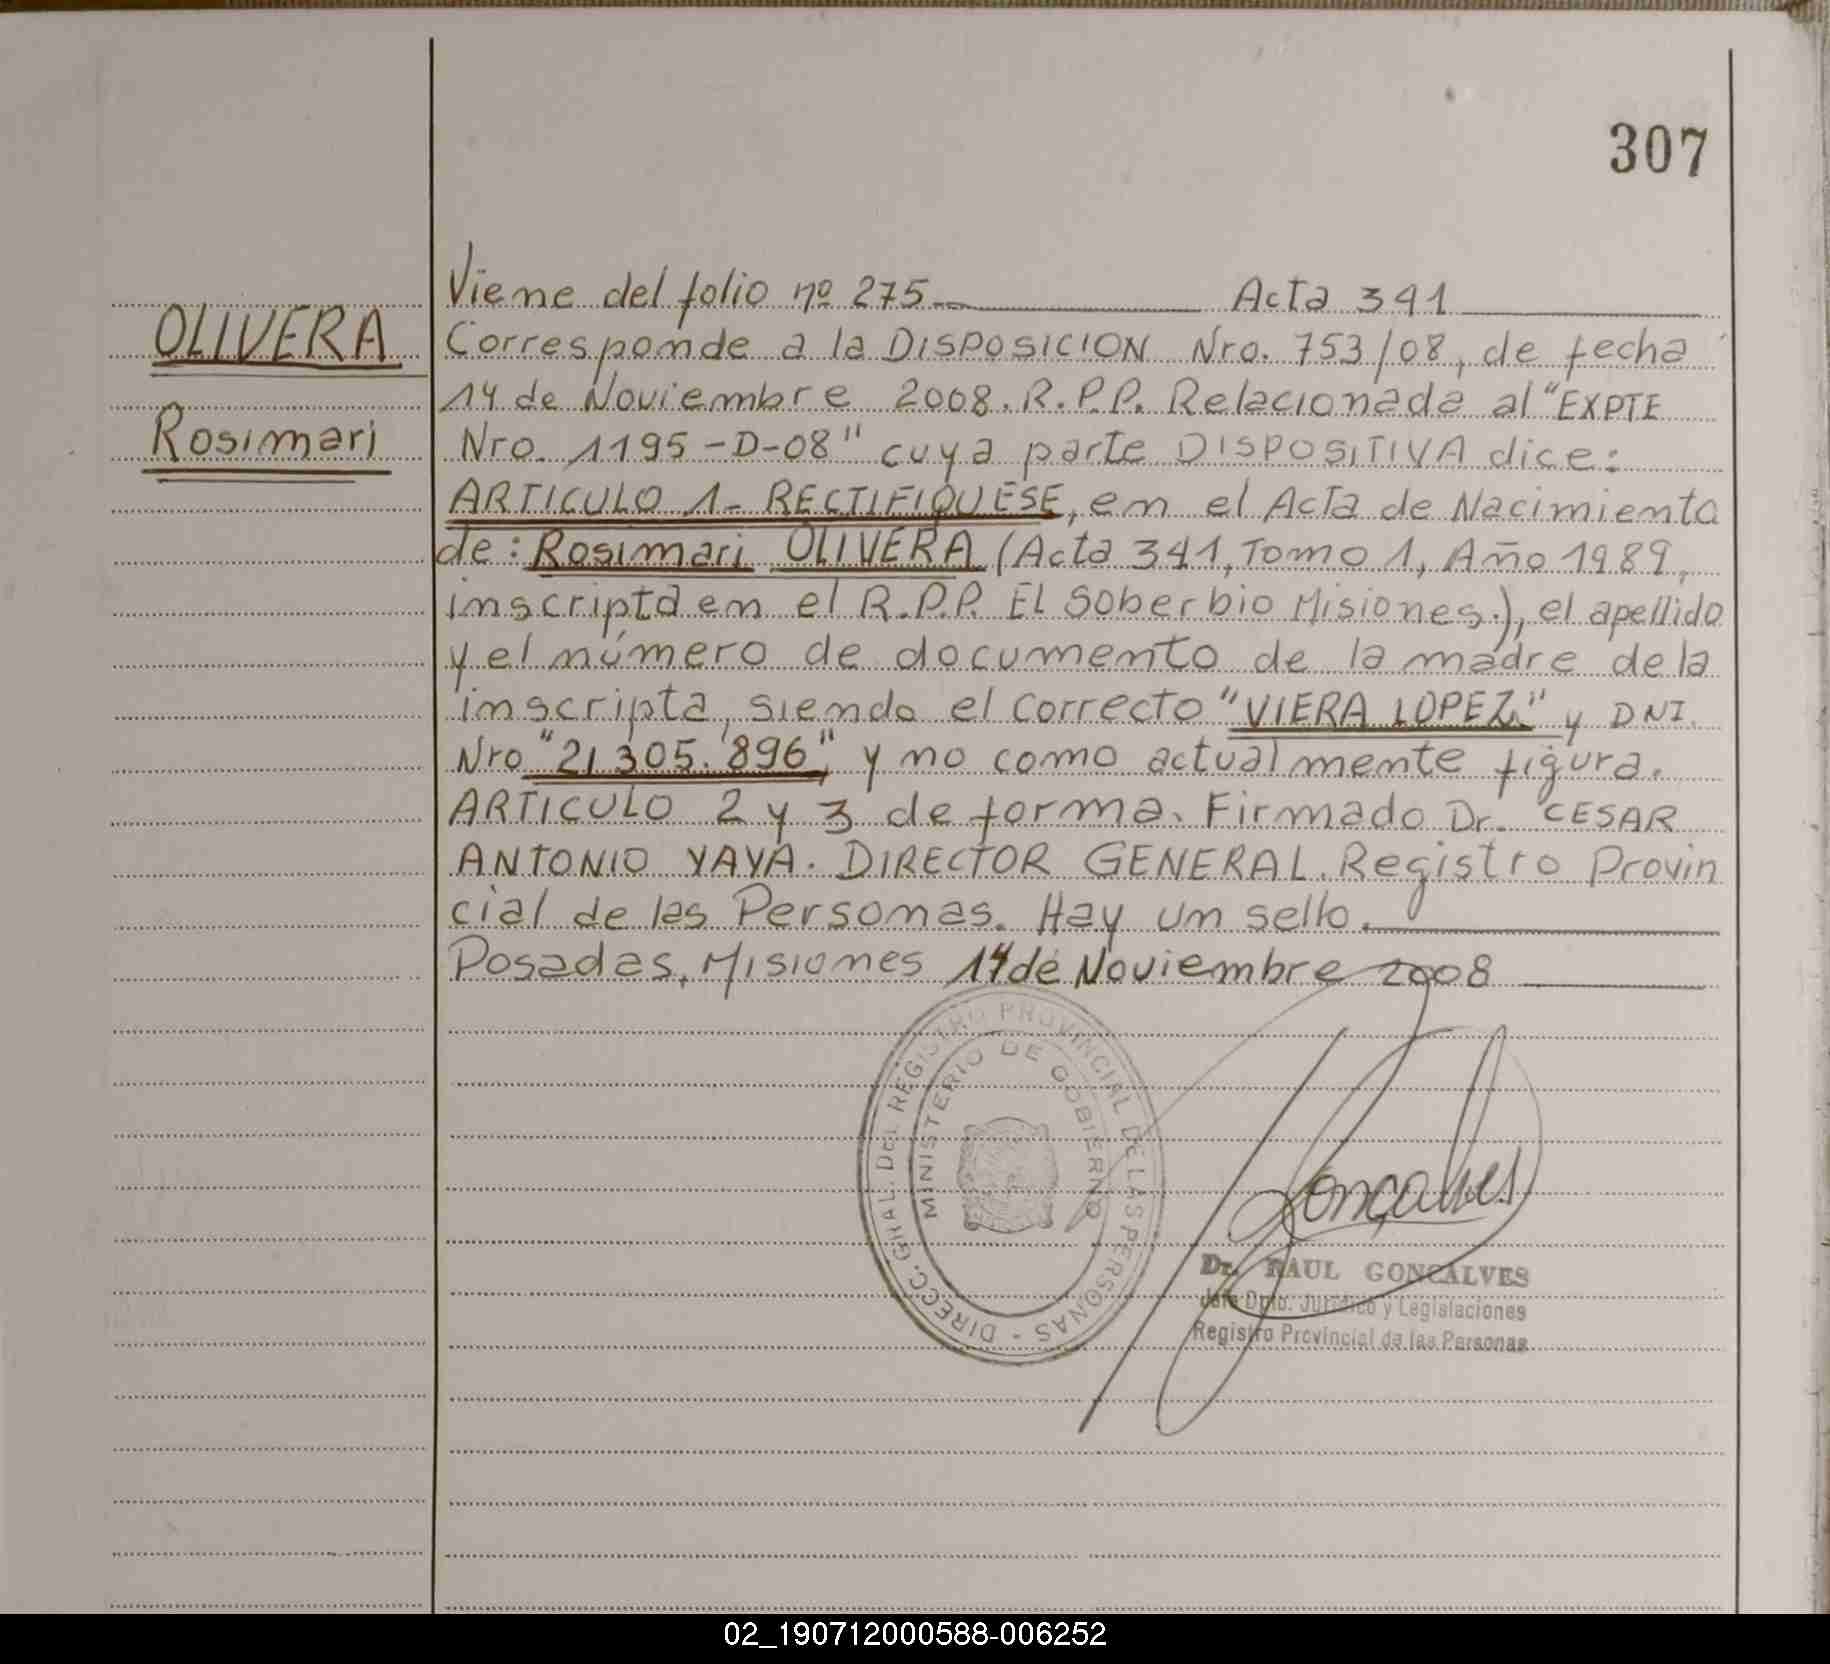 307
OLIVERA
Rosimari
Viene del folio nº 275 Acta 341
Corresponde a la DISPOSICION Nro. 753/08, de fecha
14 de Noviembre 2008. R.P.P. Relacionada al "EXPTE
Nro. 1195-D-08" cuya parte DISPOSITIVA dice:
ARTICULO 1- RECTIFIQUESE, en el Acta de Nacimiento
de: Rosimari OLIVERA (Acta 341, Tomo 1, Año 1989,
inscripta en el R.P.P. El Soberbio Misiones.), el apellido
y el número de documento de la madre de la
inscripta, siendo el correcto "VIERA LOPEZ" y DNI.
Nro "21.305.896", y no como actualmente figura.
ARTICULO 2 y 3 de forma. Firmado Dr. CESAR
ANTONIO YAYA. DIRECTOR GENERAL. Registro Provin
cial de las Personas. Hay un sello.
Posadas, Misiones 14 de Noviembre 2008
DIRECC. GRAL. DEL REGISTRO PROVINCIAL DE LAS PERSONAS -
MINISTERIO DE GOBIERNO
Gonçalves
Dr. RAUL GONCALVES
Jefe Dpto. Jurídico y Legislaciones
Registro Provincial de las Personas
02_190712000588-006252